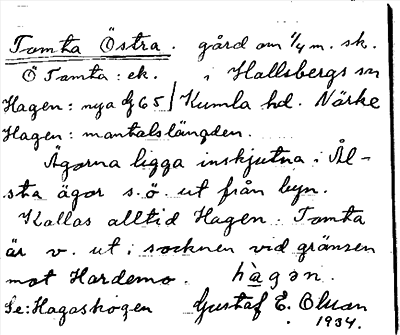 Tomta Östra. gård om 1/4 m. sk.
Ö Tomta: ek. i Hallsbergs sn
Hagen: nya dj 65 / Kumla hd. Närke
Hagen: mantalslängden.
Ägorna ligga inskjutna i Ål-
sta ägor s.ö. ut från byn.
Kallas alltid Hagen. Tomta
är v. ut i socknen vid gränsen
mot Hardemo. hàgən.
Se: Hagaskogen Gustaf E. Olsson
1934.